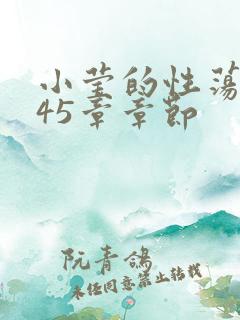 小莹的性荡
45章章节
阮青鸽
未经同意禁止转载